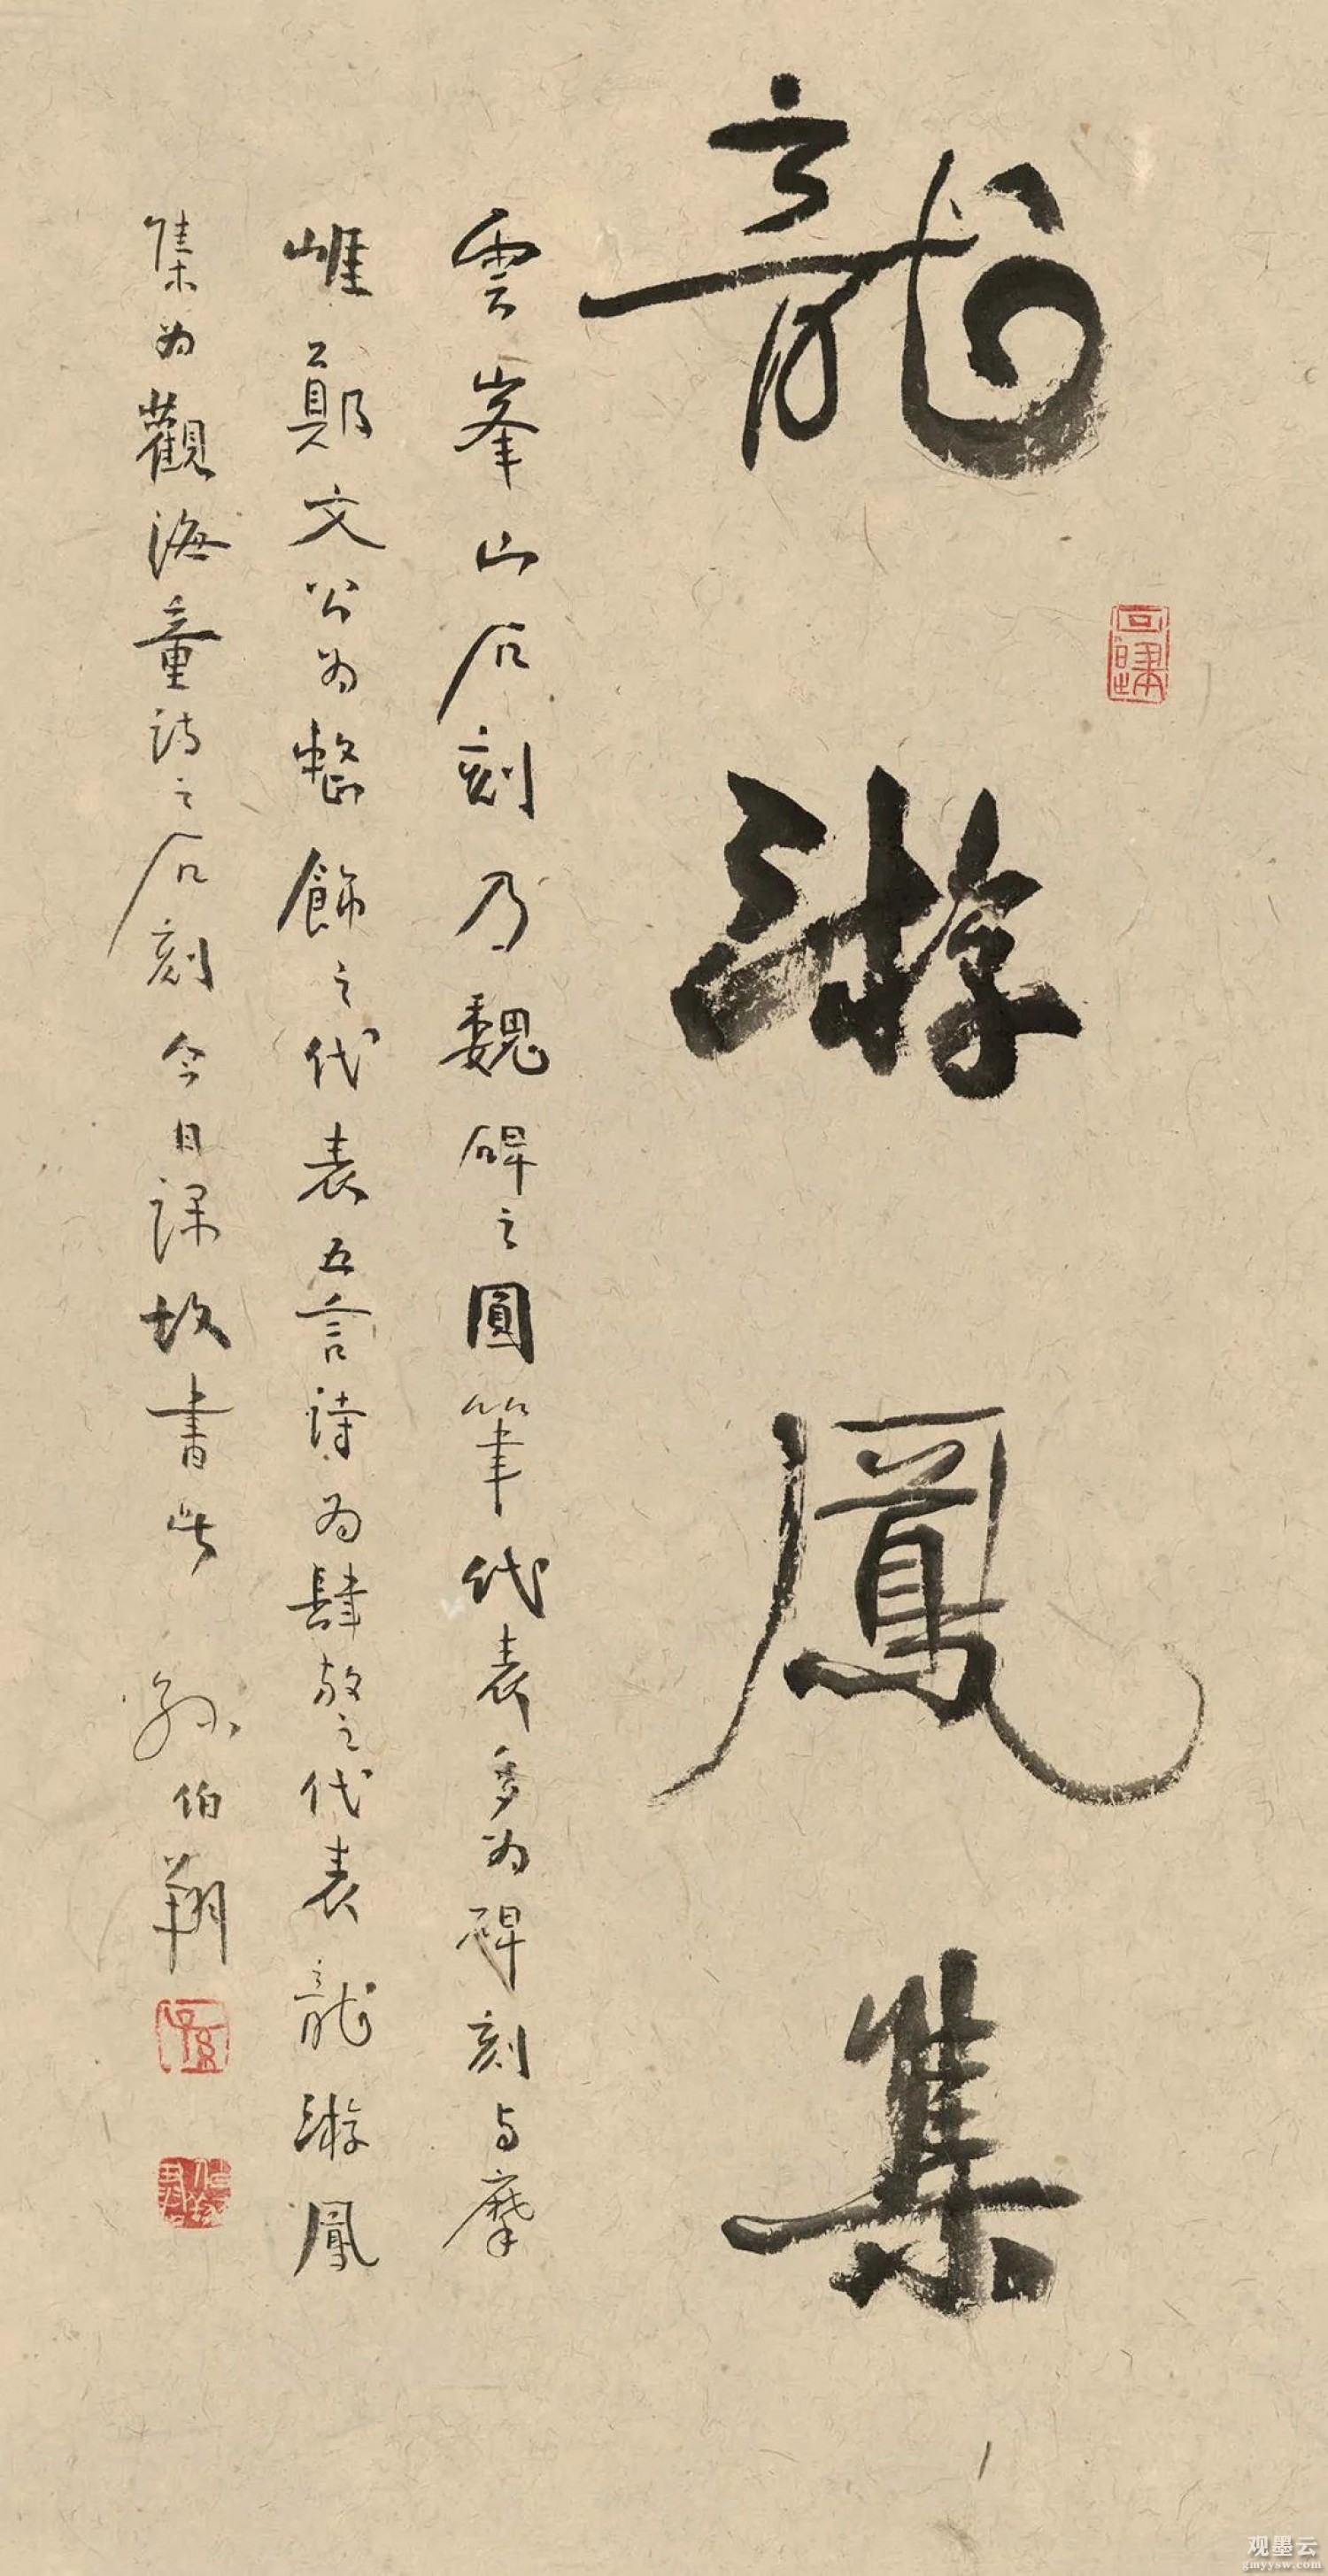 龍游鳳集
雲峯山石刻乃魏碑之圓筆代表多為碑刻与摩
崖鄭文公為整飾之代表五言詩為肆放之代表龍游鳳
集為觀海童詩之石刻今日課故書此 孫伯翔
观墨云
gmyysw.com